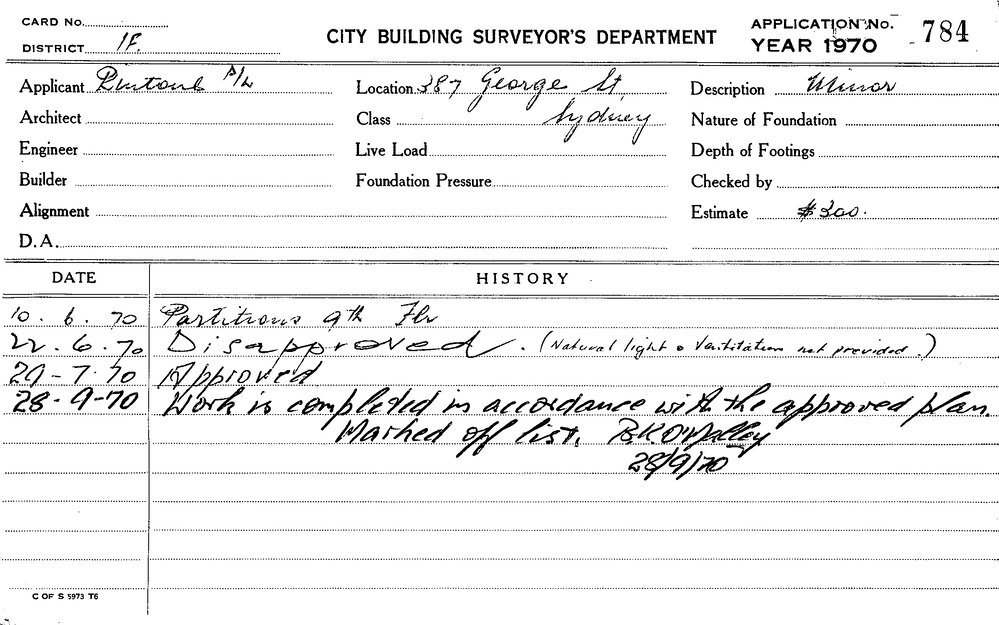 CARD No.
DISTRICT 1F.
CITY BUILDING SURVEYOR'S DEPARTMENT
APPLICATION No. 784
YEAR 1970
Applicant P/L
Location 387 George St,
Description Minor
Architect
Class Sydney
Nature of Foundation
Engineer
Live Load
Depth of Footings
Builder
Foundation Pressure
Checked by
Alignment
Estimate $300.
D.A.
DATE HISTORY
10. 6. 70 Partitions 9th Flr
22. 6. 70 Disapproved. (Natural light & Ventilation not provided.)
29-7-70 Approved
28-9-70 Work is completed in accordance with the approved plan.
Marked off list. B.K.O'Malley
28/9/70
C OF S 5973 T6